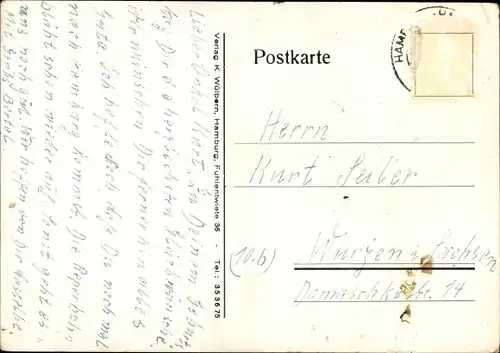 Lieber Onkel Kurt, zu Deinem
die herzlichsten Glückwünsche.
Wir wünschen Dir ferner hin alles
Gute. Ich hoffe doch daß Du noch mal
nach Hamburg kommst. Die Reperbahn
blüht schon wieder auf. Sonst geht es
uns noch gut. Wir hoffen von Dir dasselbe.
Verlag K. Wülbern, Hamburg, Fuhlentwiete 36 - Tel.: 35 36 75
Postkarte
HAMB
Herrn
Kurt Seiler
(10b) Wurzen i. Sachsen
Dammschkestr. 14